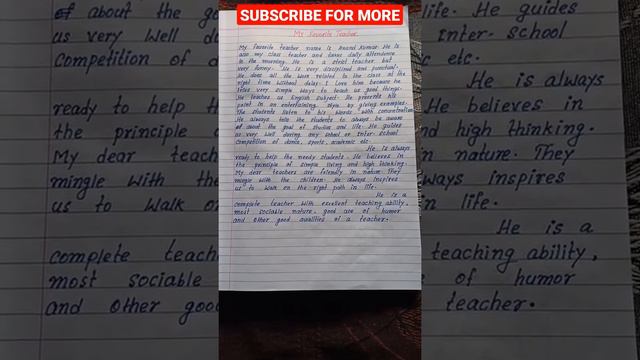 SUBSCRIBE FOR MORE
My Favorite Teacher
My favorite teacher name is Anand Kumar. He is
also my class teacher and takes daily attendence
in the morning. He is a strict teacher but
very funny. He is very disciplined and punctual.
He does all the work related to the class at the
right time without delay. I love him because he
tries very simple ways to teach us good things.
He teaches us English subject. He presents his
point in an entertaining style by giving examples.
The students listen to his words with concentration.
He always tells the students to always be aware
of about the goal of studies and life. He guides
us very well during any school or Inter-school
competition of dance, sports, academic etc.
He is always
ready to help the needy students. He believes in
the principle of simple living and high thinking.
My dear teachers are friendly in nature. They
mingle with the children. He always inspires
us to walk on the right path in life.
He is a
complete teacher with excellent teaching ability,
most sociable nature, good use of humor
and other good qualities of a teacher.
of about the go
us very well d
competition of d
ready to help th
the principle
My dear teach
mingle with the
us to walk o
complete teach
most sociable
and other good
life. He guides
Inter-school
etc.
He is always
He believes in
nd high thinking.
in nature. They
ways inspires
n life.
He is a
teaching ability,
of humor
teacher.